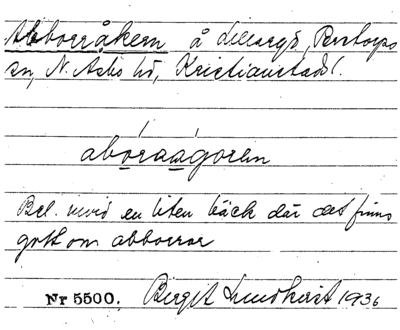 Abborråkern å Lillaryd, Perstorps
sn, N. Åsbo hd, Kristianstads l.
aboraagoren
Bel. invid en liten bäck där det finns
gott om abborrar
Nr 5500. Birgit Lundkvist 1936